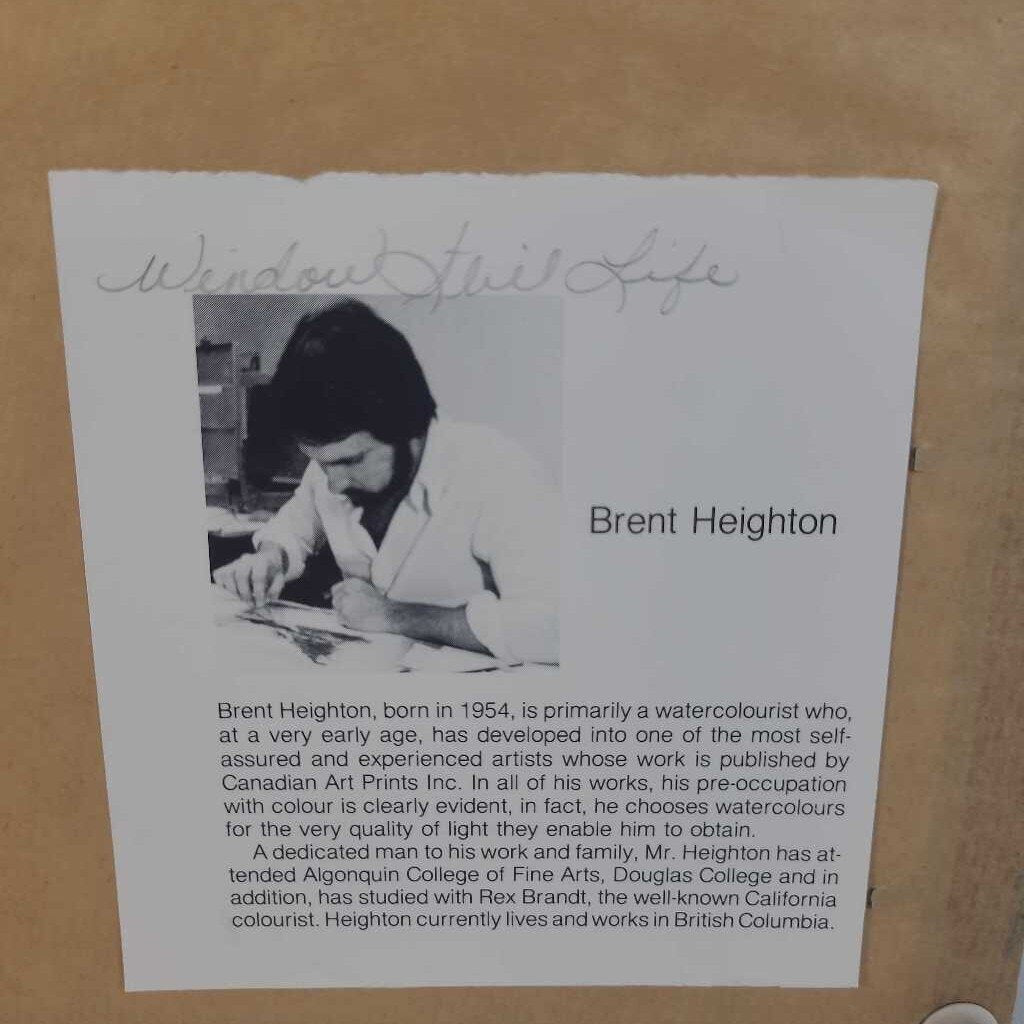 Window Stil Life
Brent Heighton
Brent Heighton, born in 1954, is primarily a watercolourist who,
at a very early age, has developed into one of the most self-
assured and experienced artists whose work is published by
Canadian Art Prints Inc. In all of his works, his pre-occupation
with colour is clearly evident, in fact, he chooses watercolours
for the very quality of light they enable him to obtain.
A dedicated man to his work and family, Mr. Heighton has at-
tended Algonquin College of Fine Arts, Douglas College and in
addition, has studied with Rex Brandt, the well-known California
colourist. Heighton currently lives and works in British Columbia.